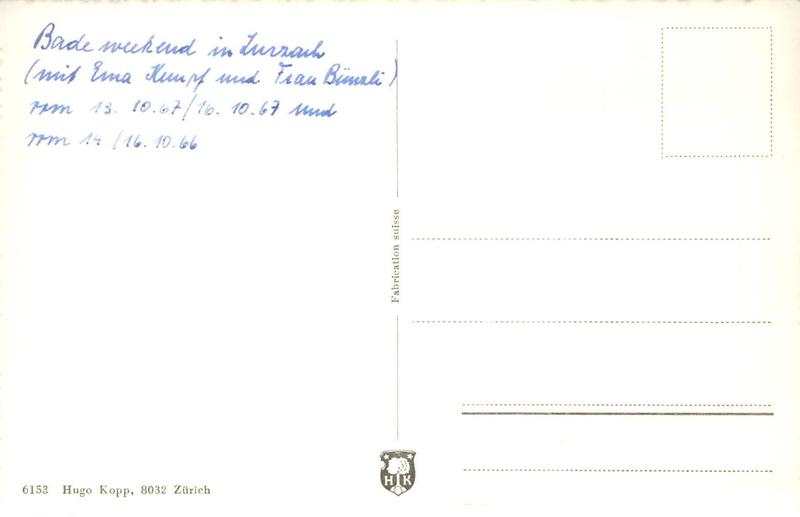 Badeweekend in Zurzach
(mit Erna Kempf und Frau Bünzli)
vom 13. 10.67/16. 10.67 und
vom 14/16.10.66
Fabrication suisse
HK
6153 Hugo Kopp, 8032 Zürich